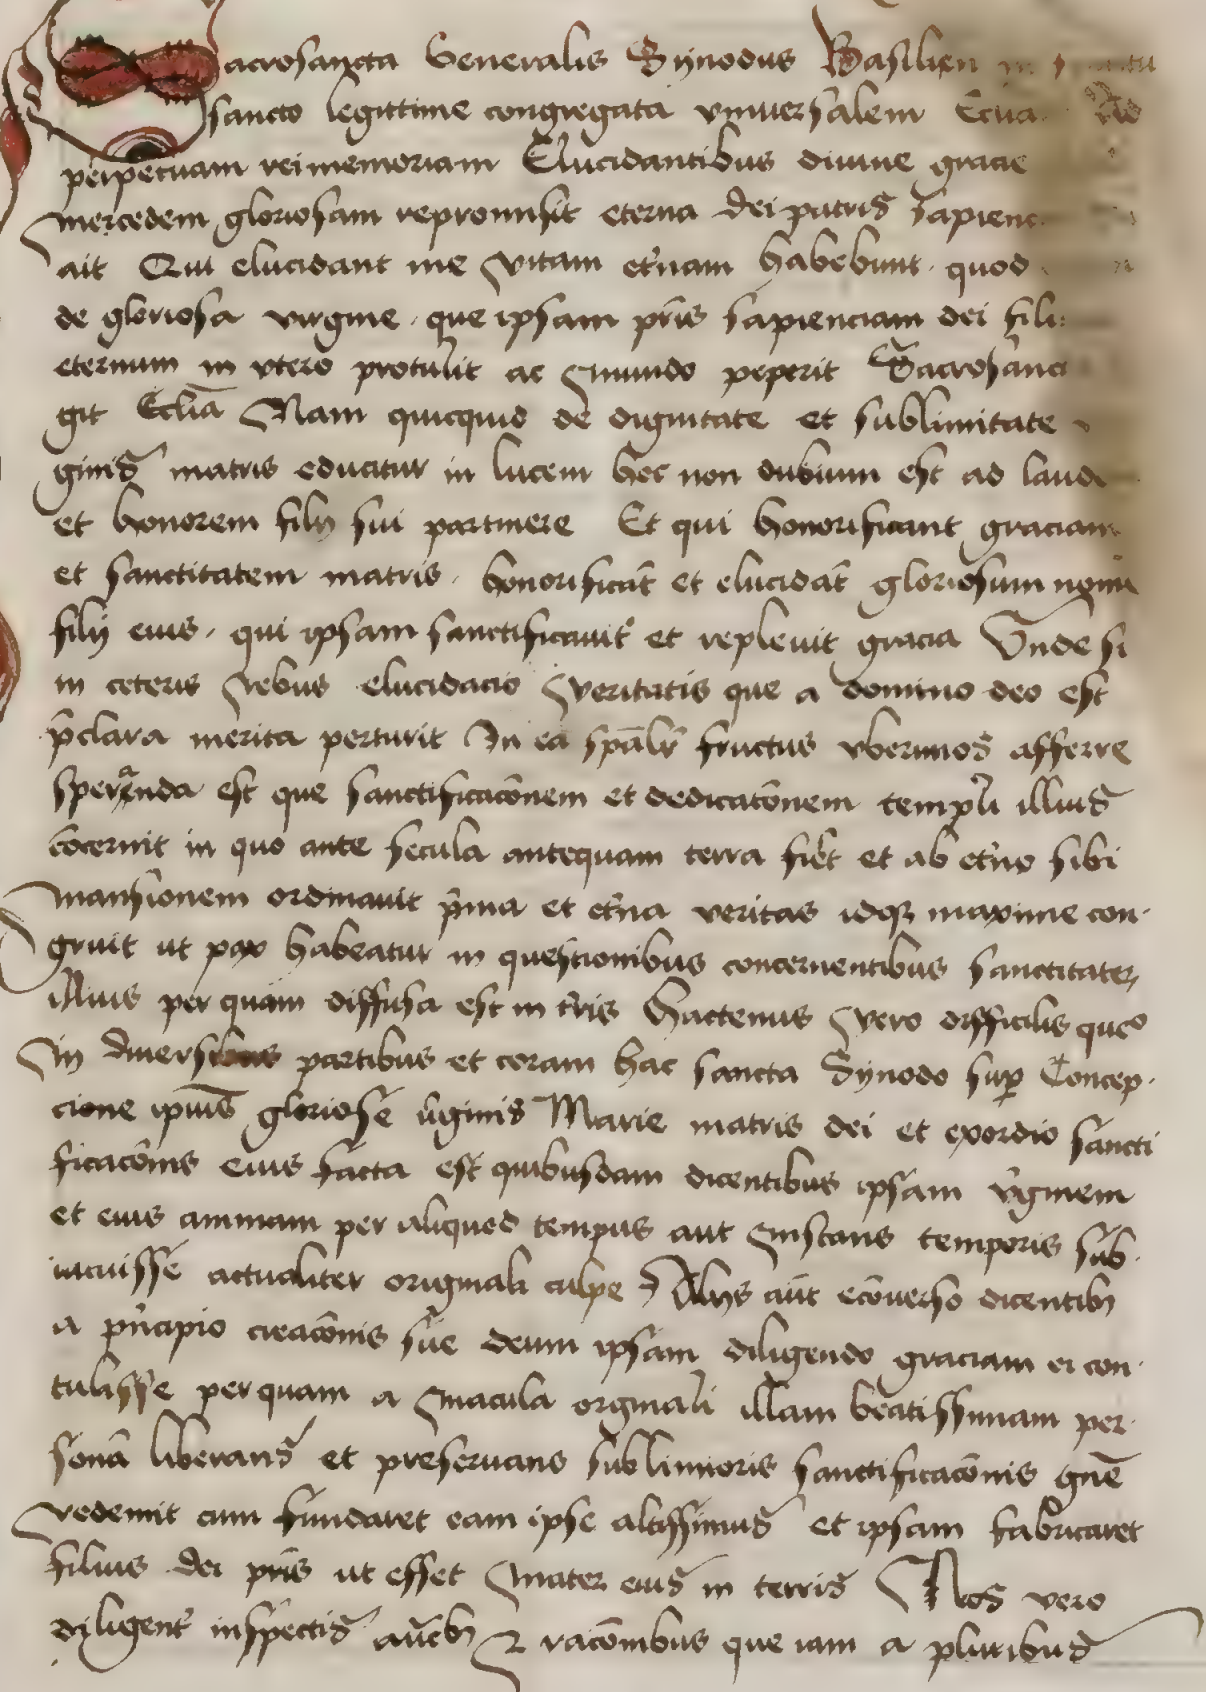 Sacrosancta Generalis Synodus Basilien in
sancto legittime congregata vniuersalem Ad
perpetuam rei memoriam Elucidantibus diuine gracie
mercedem gloriosam repromisit eterna dei patris sapienc
ait Qui elucidant me vitam et'nam habebunt. quod
de gloriosa virgine. que ipsam pr̄is sapienciam dei fili
eternum in vtero protulit ac mundo peperit Sacrosanct
git Eccl̄ia Nam quicquid de dignitate et sublimitate v
ginis matris educitur in lucem hoc non dubium est ad laude
et honorem filij sui pertinere Et qui honorificant graciam
et sanctitatem matris. honorificāt et elucidāt gloriosum nomi
filij eius. qui ipsam sanctificauit et repleuit gracia Vnde si
in ceteris rebus elucidacio veritatis que a domino deo est
p̄clara merita perturit In ea sp̄alr̄ fructus vberimos afferre
speranda est que sanctificacōnem et dedicatōnem templi illius
cōcernit in quo ante secula antequam terra fiēt et ab et'no sibi
mansionem ordinauit p̄ma et et'na veritas idqꝫ maxime con-
gruit ut pax habeatur in questionibus concernentibus sanctitateꝫ
illius per quam diffusa est in t'ris Hactenus vero difficilis queō
in diuersibus partibus et coram hac sancta Synodo sup̱ Concep-
cione ipius gloriose v̄ginis Marie matris dei et exordio sancti
ficacōnis eius facta est quibusdam dicentibus ipsam v̄ginem
et eius animam per aliquod tempus aut instans temporis sub-
iacuisse actualiter originali culpe Alijs aūt ecōuerso dicentibꝫ
a pn̄cipio creacōnis sue deum ipsam diligendo graciam ei con-
tulisse per quam a macula orginali illam beatissimam per-
sonā liberans et preseruans sublimioris sanctificacōnis gn̄e
redemit cum fundaret eam ipse altissimus et ipsam fabricaret
filius dei pr̄is ut esset mater eius in terris Nos vero
diligent' inspectis auc̄tibꝫ ⁊ racōnibus que iam a pluribus